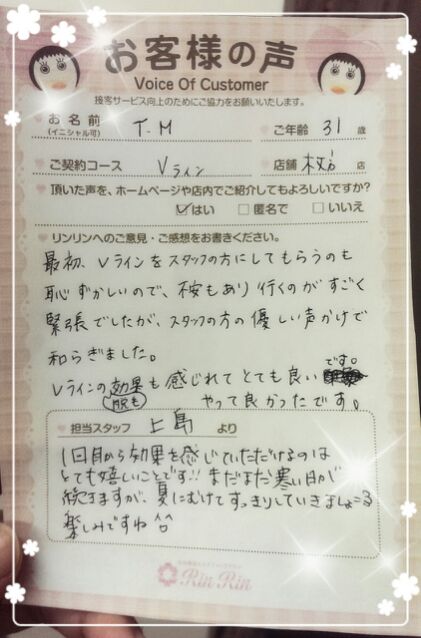 お客様の声
Voice Of Customer
接客サービス向上のためにご協力をお願いいたします。
お名前 T.M ご年齢 31 歳
(イニシャル可)
ご契約コース Vライン 店舗 枚方 店
頂いた声を、ホームページや店内でご紹介してもよろしいですか?
☑はい □匿名で □いいえ
リンリンへのご意見・ご感想をお書きください。
最初、Vラインをスタッフの方にしてもらうのも
恥ずかしいので、不安もあり行くのがすごく
緊張でしたが、スタッフの方の優しい声かけで
和らぎました。
Vラインの効果も感じれてとても良いです。
脱毛 やって良かったです。
担当スタッフ 上島 より
1回目から効果を感じていただけるのは
とても嬉しいことです!! まだまだ寒い日が
続きますが、夏にむけてすっきりしていきましょうる
楽しみですね^^
Rin Rin